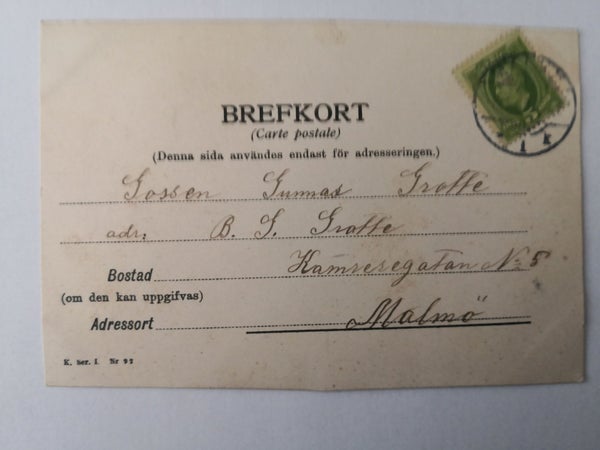 BREFKORT
(Carte postale)
(Denna sida användes endast för adresseringen.)
Gossen Gunnar Grotte
adr; B. G. Grotte
Bostad Kamreregatan No 5
(om den kan uppgifvas)
Adressort Malmö
K. Ser. I. Nr 97